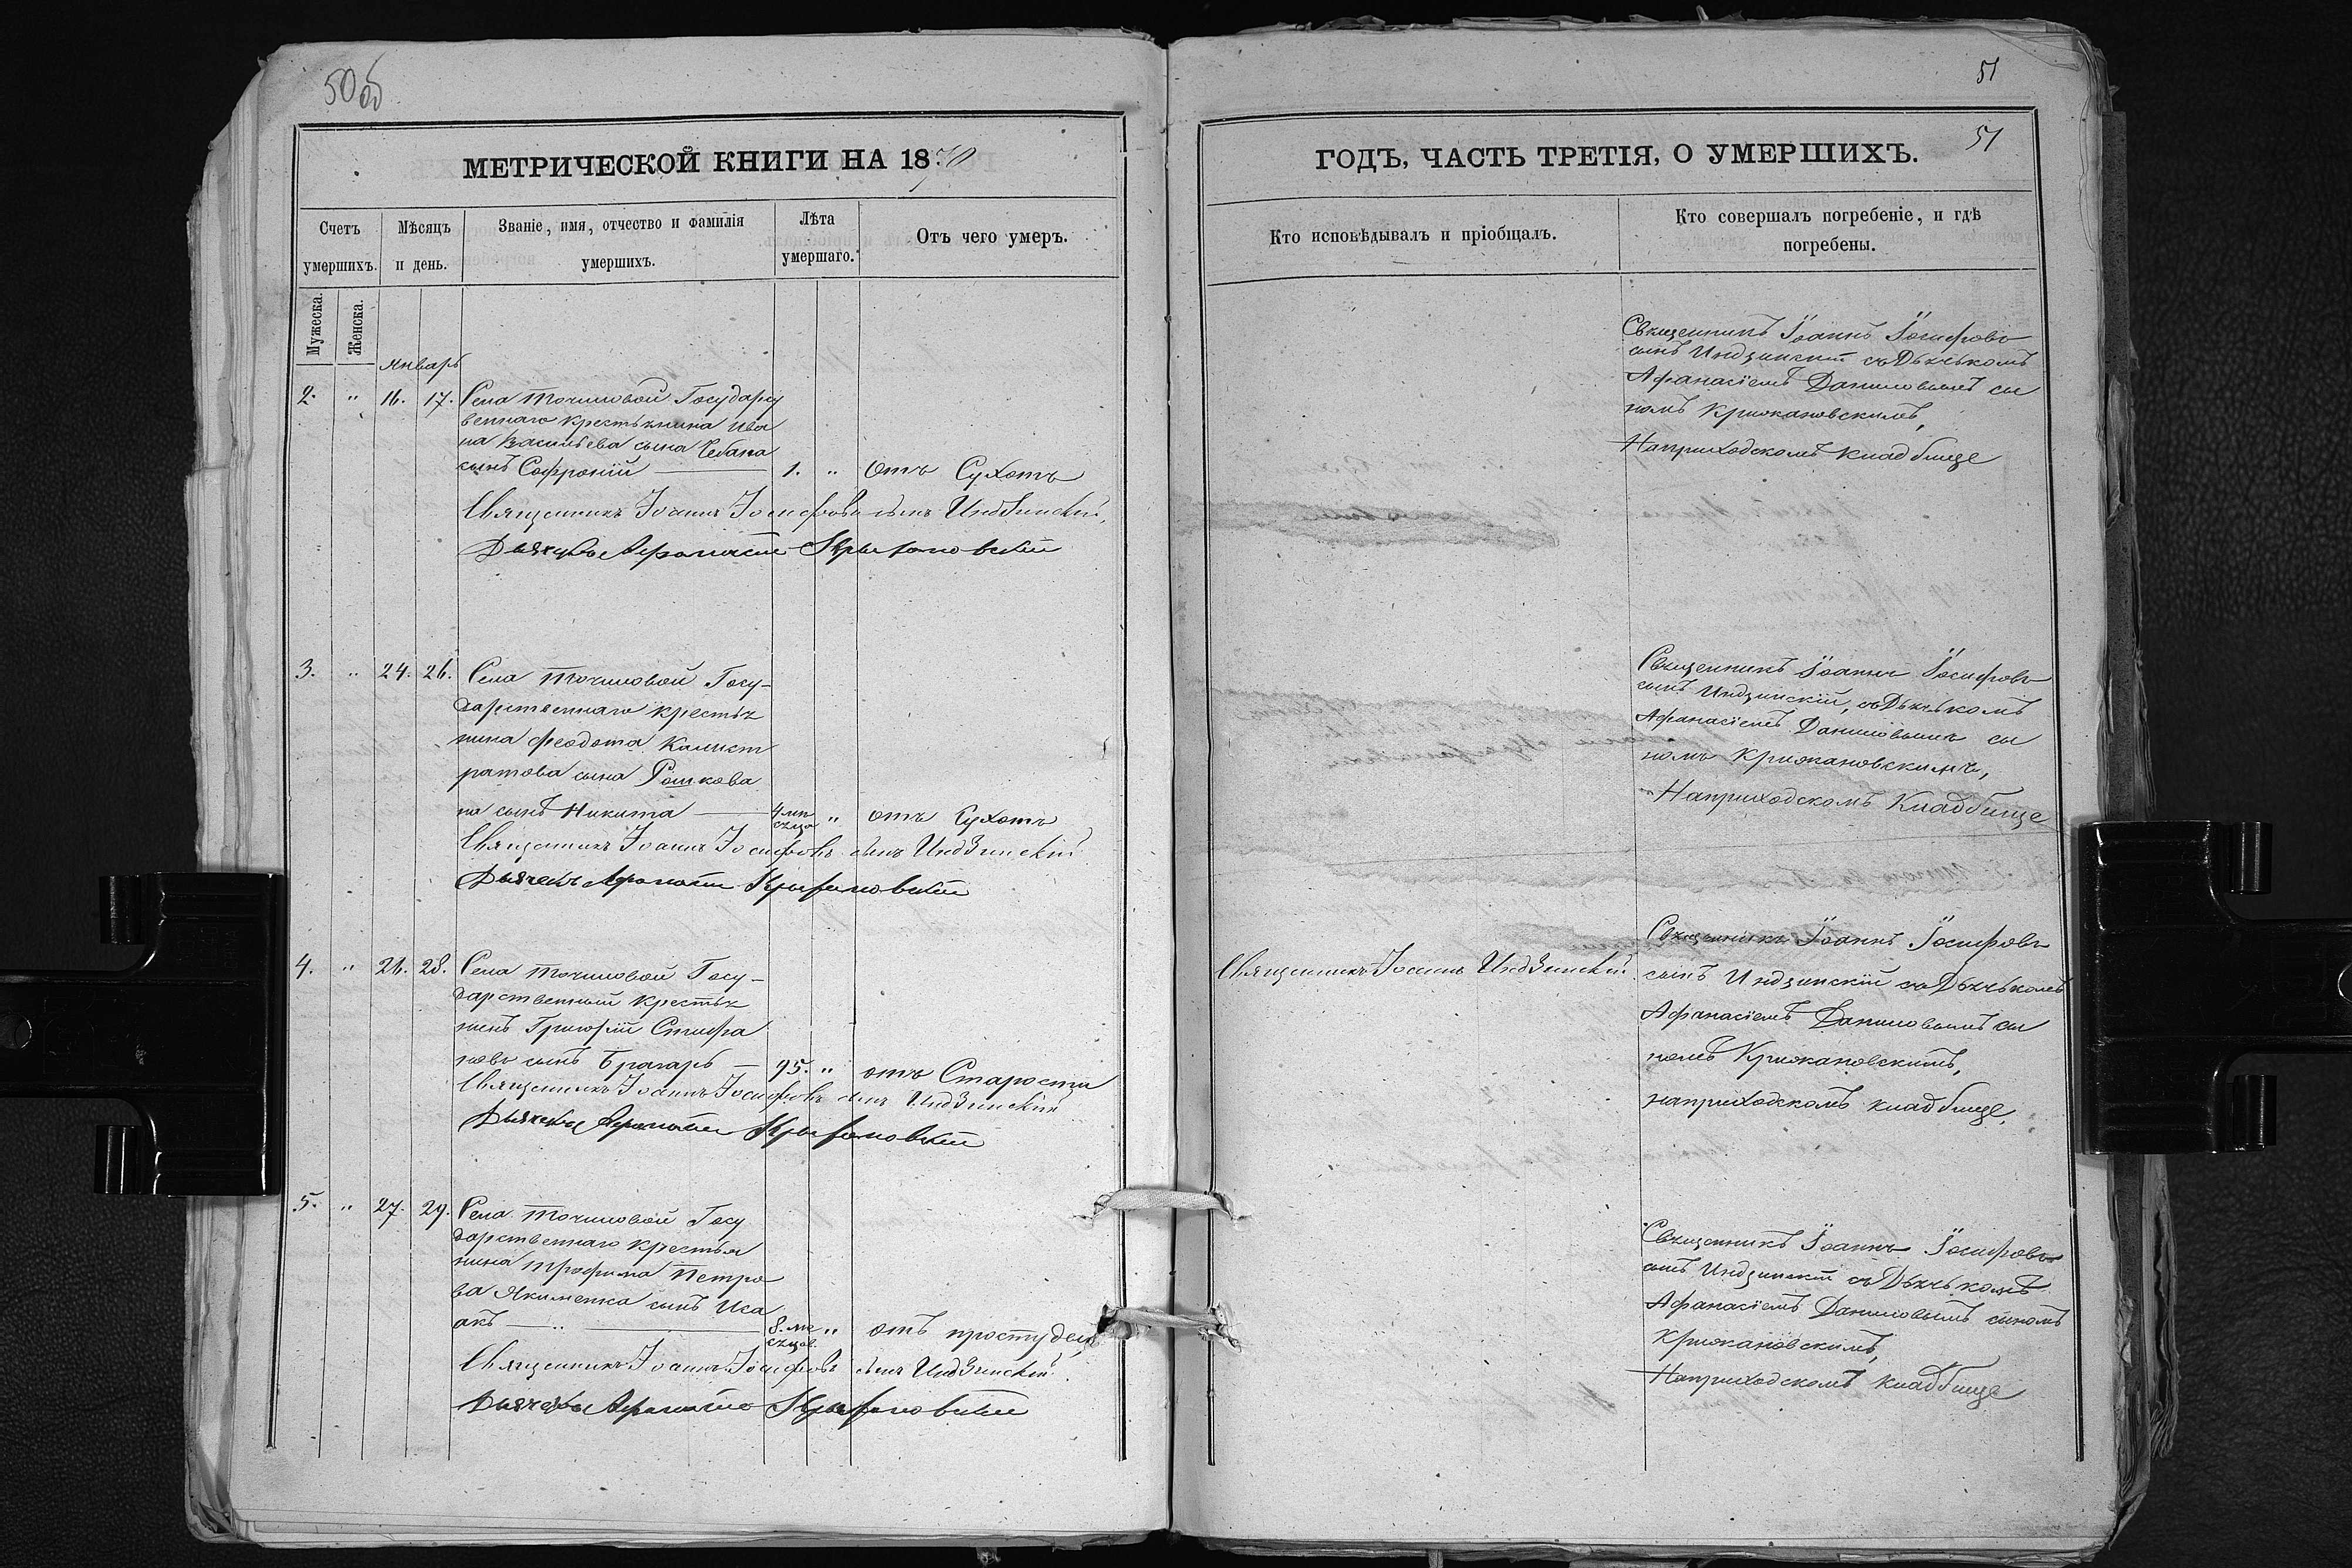 50 об
МЕТРИЧЕСКОЙ КНИГИ НА 1870
Счетъ умершихъ.
Мѣсяцъ и день.
Званіе, имя, отчество и фамилія умершихъ.
Лѣта умершаго.
Отъ чего умеръ.
Мужеска.
Женска.
январь
2. " 16. 17. Села Точиловой Государс
веннаго крестьянина Ива
на Васильева сына Чебана
сынъ Софроній — 1. " отъ Сухотъ
Священникъ Іоаннъ Іосифовъ сынъ Индзинскій,
Дьячекъ Афанасій Крыжановскій
3. " 24. 26. Села Точиловой Госу-
дарственнаго крестья
нина Феодота Калист
ратова сына Рошкова
на сынъ Никита — 4 мѣ
сяца " отъ Сухотъ
Священникъ Іоаннъ Іосифовъ сынъ Индзинскій
Дьячекъ Афанасій Крыжановскій
4. " 26. 28. Села Точиловой Госу-
дарственный крестья
нинъ Григорій Стифа
новъ сынъ Брагарь — 95. " отъ Старости
Священникъ Іоаннъ Іосифовъ сынъ Индзинскій
Дьячекъ Афанасій Крыжановскій
5. " 27. 29. Села Точиловой Госу
дарственнаго крестья
нина Трофима Петро
ва Якименка сынъ Иса
акъ — " — 8. мѣ
сяцов. " отъ простуды
Священникъ Іоаннъ Іосифовъ сынъ Индзинскій
Дьячекъ Афанасій Крыжановскій
51
51
ГОДЪ, ЧАСТЬ ТРЕТІЯ, О УМЕРШИХЪ.
Кто исповѣдывалъ и пріобщалъ.
Кто совершалъ погребеніе, и гдѣ
погребены.
Священникъ Іоаннъ Іосифовъ
сынъ Индзинскій съ Дьячькомъ
Афанасіемъ Даниловымъ сы
номъ Крижановскимъ,
Наприходскомъ кладбище
Священникъ Іоаннъ Іосифовъ
сынъ Индзинскій, съ Дьячькомъ
Афанасіемъ Даниловымъ сы
номъ Крижановскимъ,
Наприходскомъ Кладбище
Священникъ Іоаннъ Индзинскій
Священникъ Іоаннъ Іосифовъ
сынъ Индзинскій съ Дьячькомъ
Афанасіемъ Даниловымъ сы
номъ Крижановскимъ,
наприходскомъ кладбище,
Священникъ Іоаннъ Іосифовъ
сынъ Индзинскій съ Дьячькомъ
Афанасіемъ Даниловымъ сыномъ
Крижановскимъ,
Наприходскомъ кладбище